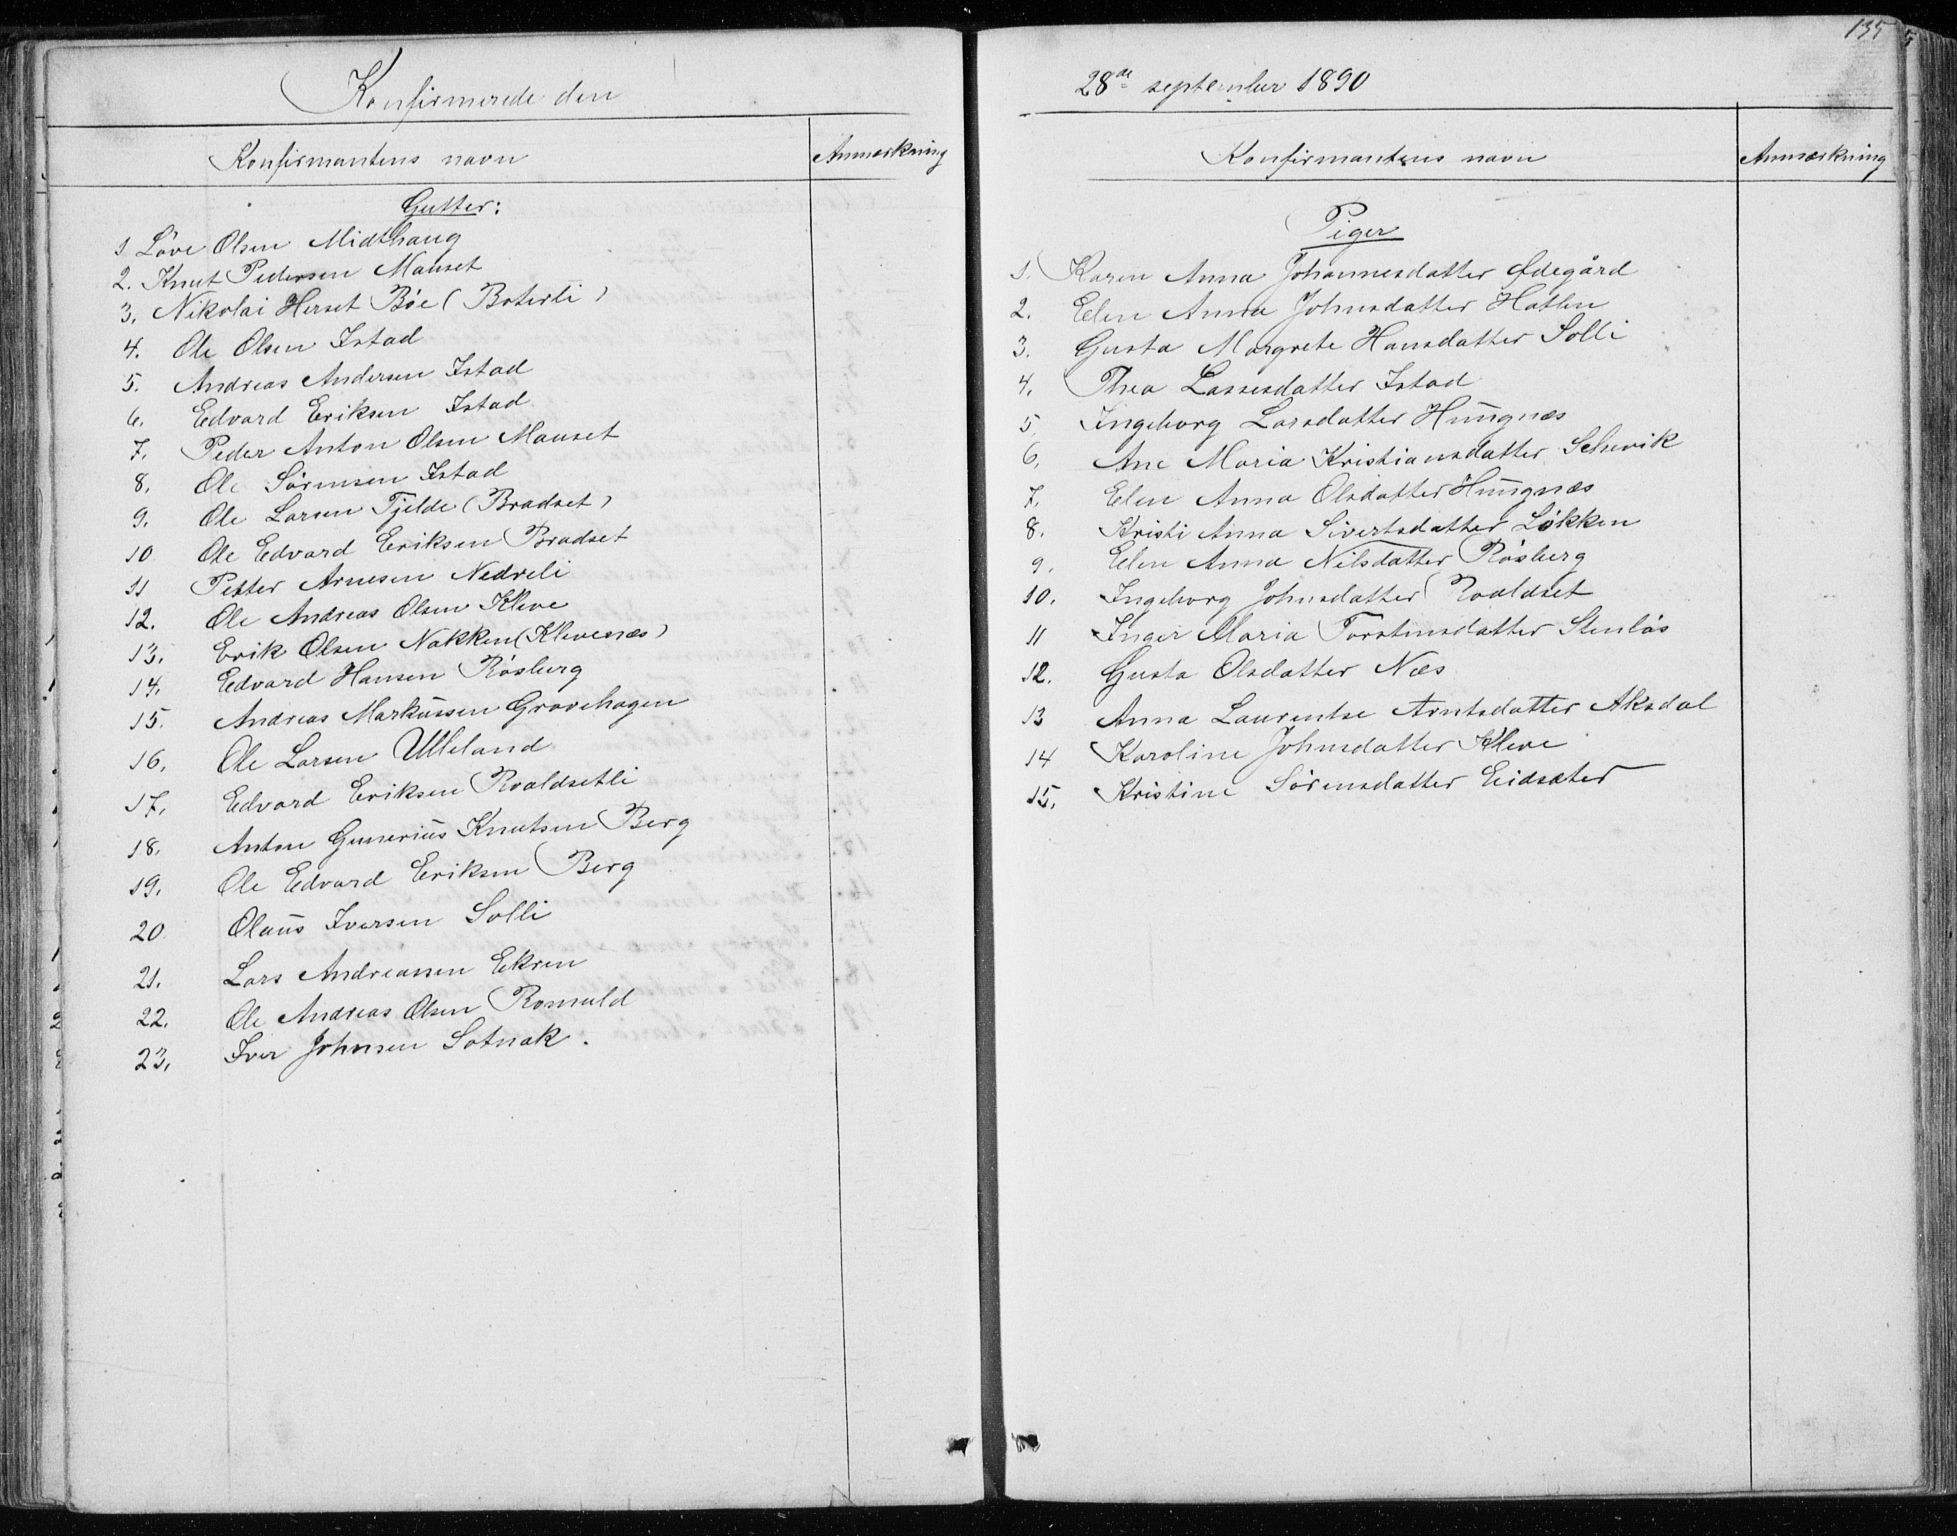 Konfirmerede den
Konfirmantens navn
Anmærkning
Gutter:
1 Löve Olsen Midthaug
2. Knut Pedersen Mauset
3. Nikolai Herset Böe (Boterli)
4. Ole Olsen Istad
5. Andreas Andersen Istad
6. Edvard Eriksen Istad
7. Peder Anton Olsen Mauset
8. Ole Sörensen Istad
9. Ole Larsen Tjelde (Bradset)
10 Ole Edvard Eriksen Bradset
11 Petter Arnesen Nedreli
12. Ole Andreas Olsen Kleve
13. Erik Olsen Nakken (Klevenæs)
14. Edvard Hansen Rösberg
15. Andreas Markussen Gravehagen
16. Ole Larsen Ulleland
17. Edvard Eriksen Roaldsetli
18. Anton Gunerius Knutsen Berg
19. Ole Edvard Eriksen Berg
20 Olaus Iversen Solli
21. Lars Andreassen Ekren
22. Ole Andreas Olsen Romuld
23. Iver Johnsen Sotnak.
135
28de september 1890
Konfirmantens navn
Anmærkning
Piger
1. Karen Anna Johannesdatter Ødegård
2. Elen Anna Johnsdatter Hatlen
3. Gusta Margrete Hansdatter Solli
4. Thea Lassesdatter Istad
5 Ingeborg Larsdatter Hungnæs
6. Ane Maria Kristiansdatter Schevik
7. Elen Anna Olsdatter Hungnæs
8. Kristi Anna Sivertsdatter Løkken
9. Elen Anna Nilsdatter Rösberg
10. Ingeborg Johnsdatter Roaldset
11 Inger Maria Torstensdatter Stenlös
12. Gusta Olsdatter Næs
13 Anna Laurentse Arntsdatter Aksdal
14 Karoline Johnsdatter Kleve
15. Kristine Sörensdatter Eidsæter